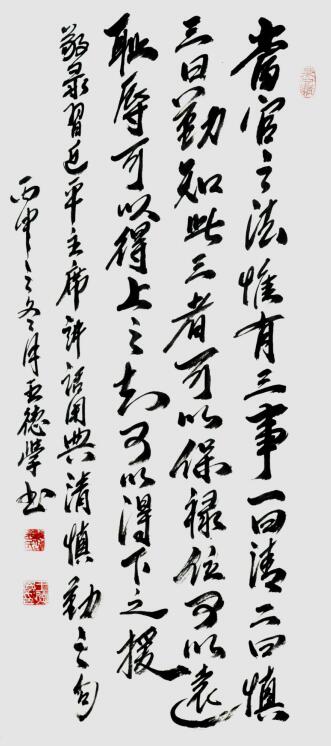 當官之法惟有三事一曰清二曰慎
三曰勤知此三者可以保祿位可以遠
恥辱可以得上之知可以得下之援
敬录習近平主席讲話用典清慎勤之句
丙申之冬月王德學书